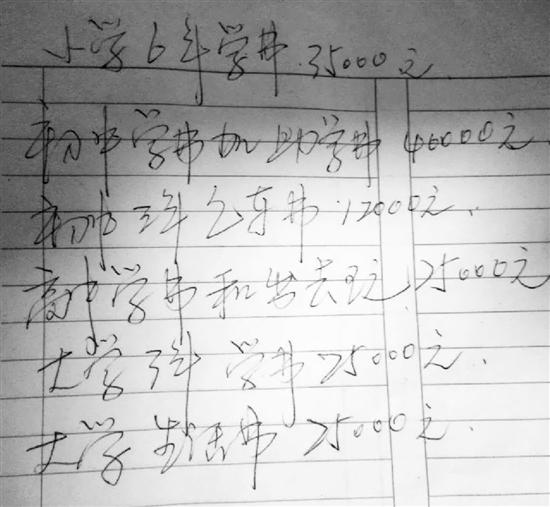 小学6年学费.35000元
初中学费加助学费46000元
初中三年包车费.12000元.
高中学费和生 25000元
大学3年 学费25000元.
大学生活费 25000元.